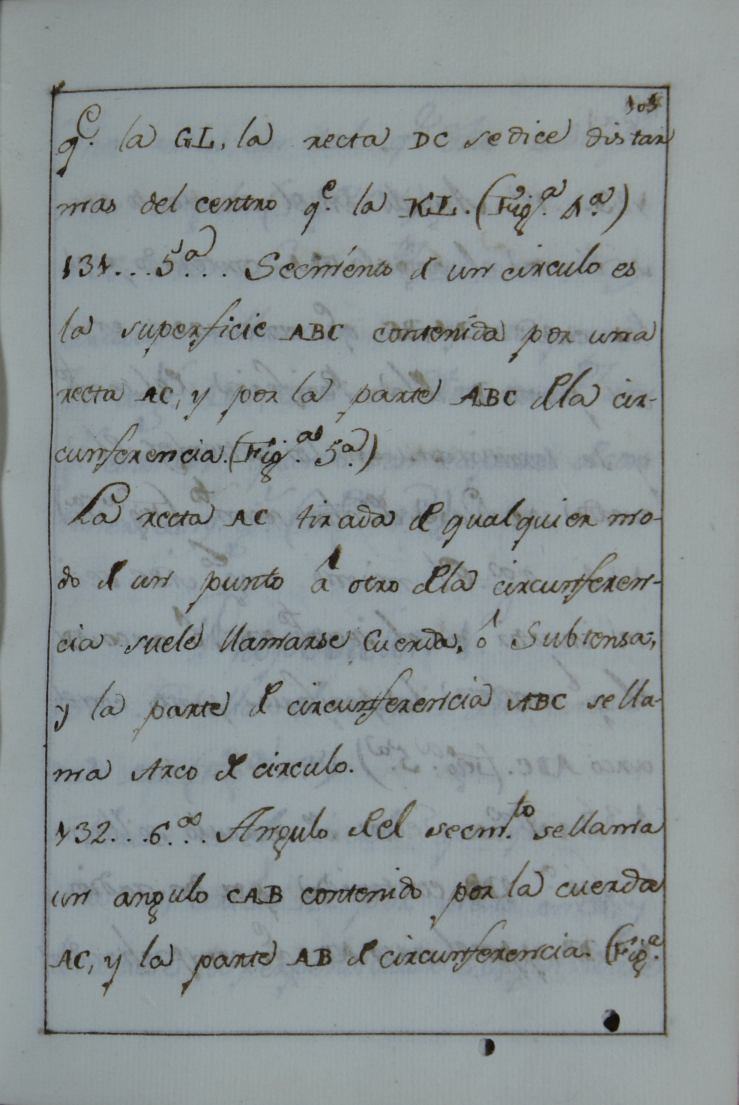 105
q.e la GL, la recta DC se dice distar
mas del centro q.e la KL. (Fig.a 4.a)
131... 5.a... Secmento d un circulo es
la superficie ABC contenida por una
recta AC, y por la parte ABC dla cir-
cunferencia. (Fig.as 5.a)
La recta AC tirada d qualquier mo-
do d un punto â otro dla circunferen-
cia suele llamarse Cuerda, ô Subtensa,
y la parte d circunferencia ABC se lla-
ma Arco d circulo.
132... 6.as... Angulo del secm.to se llama
un angulo CAB contenido por la cuerda
AC, y la parte AB d circunferencia. (Fig.a